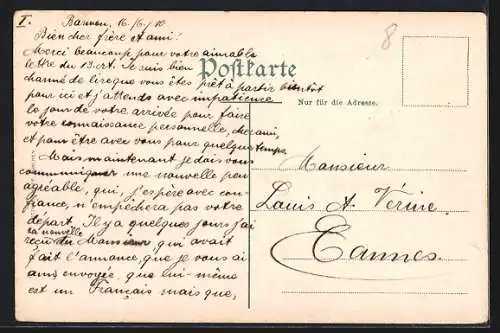 I.
Barmen, 16./6./10
Bien cher frère et ami!
Merci beaucoup pour votre aimable
lettre du 13. crt. Je suis bien
charmé de lire que vous êtes prêt à partir bientôt
pour ici et j'attends avec impatience
le jour de votre arrivée pour faire
votre connaissance personnelle,
et pour être avec vous pour quelque temps.
Mais maintenant je dois vous
communiquer une nouvelle peu
agréable, qui, j'espère avec con-
fiance, n'empêchera pas votre
départ. Il y a quelques jours j'ai
reçu la nouvelle du Monsieur qui avait
fait l'annonce, que je vous ai
envoyée, que lui-même
est un Français mais que,
Postkarte
Nur für die Adresse.
8
Monsieur
Louis A. Vérine
Cannes.